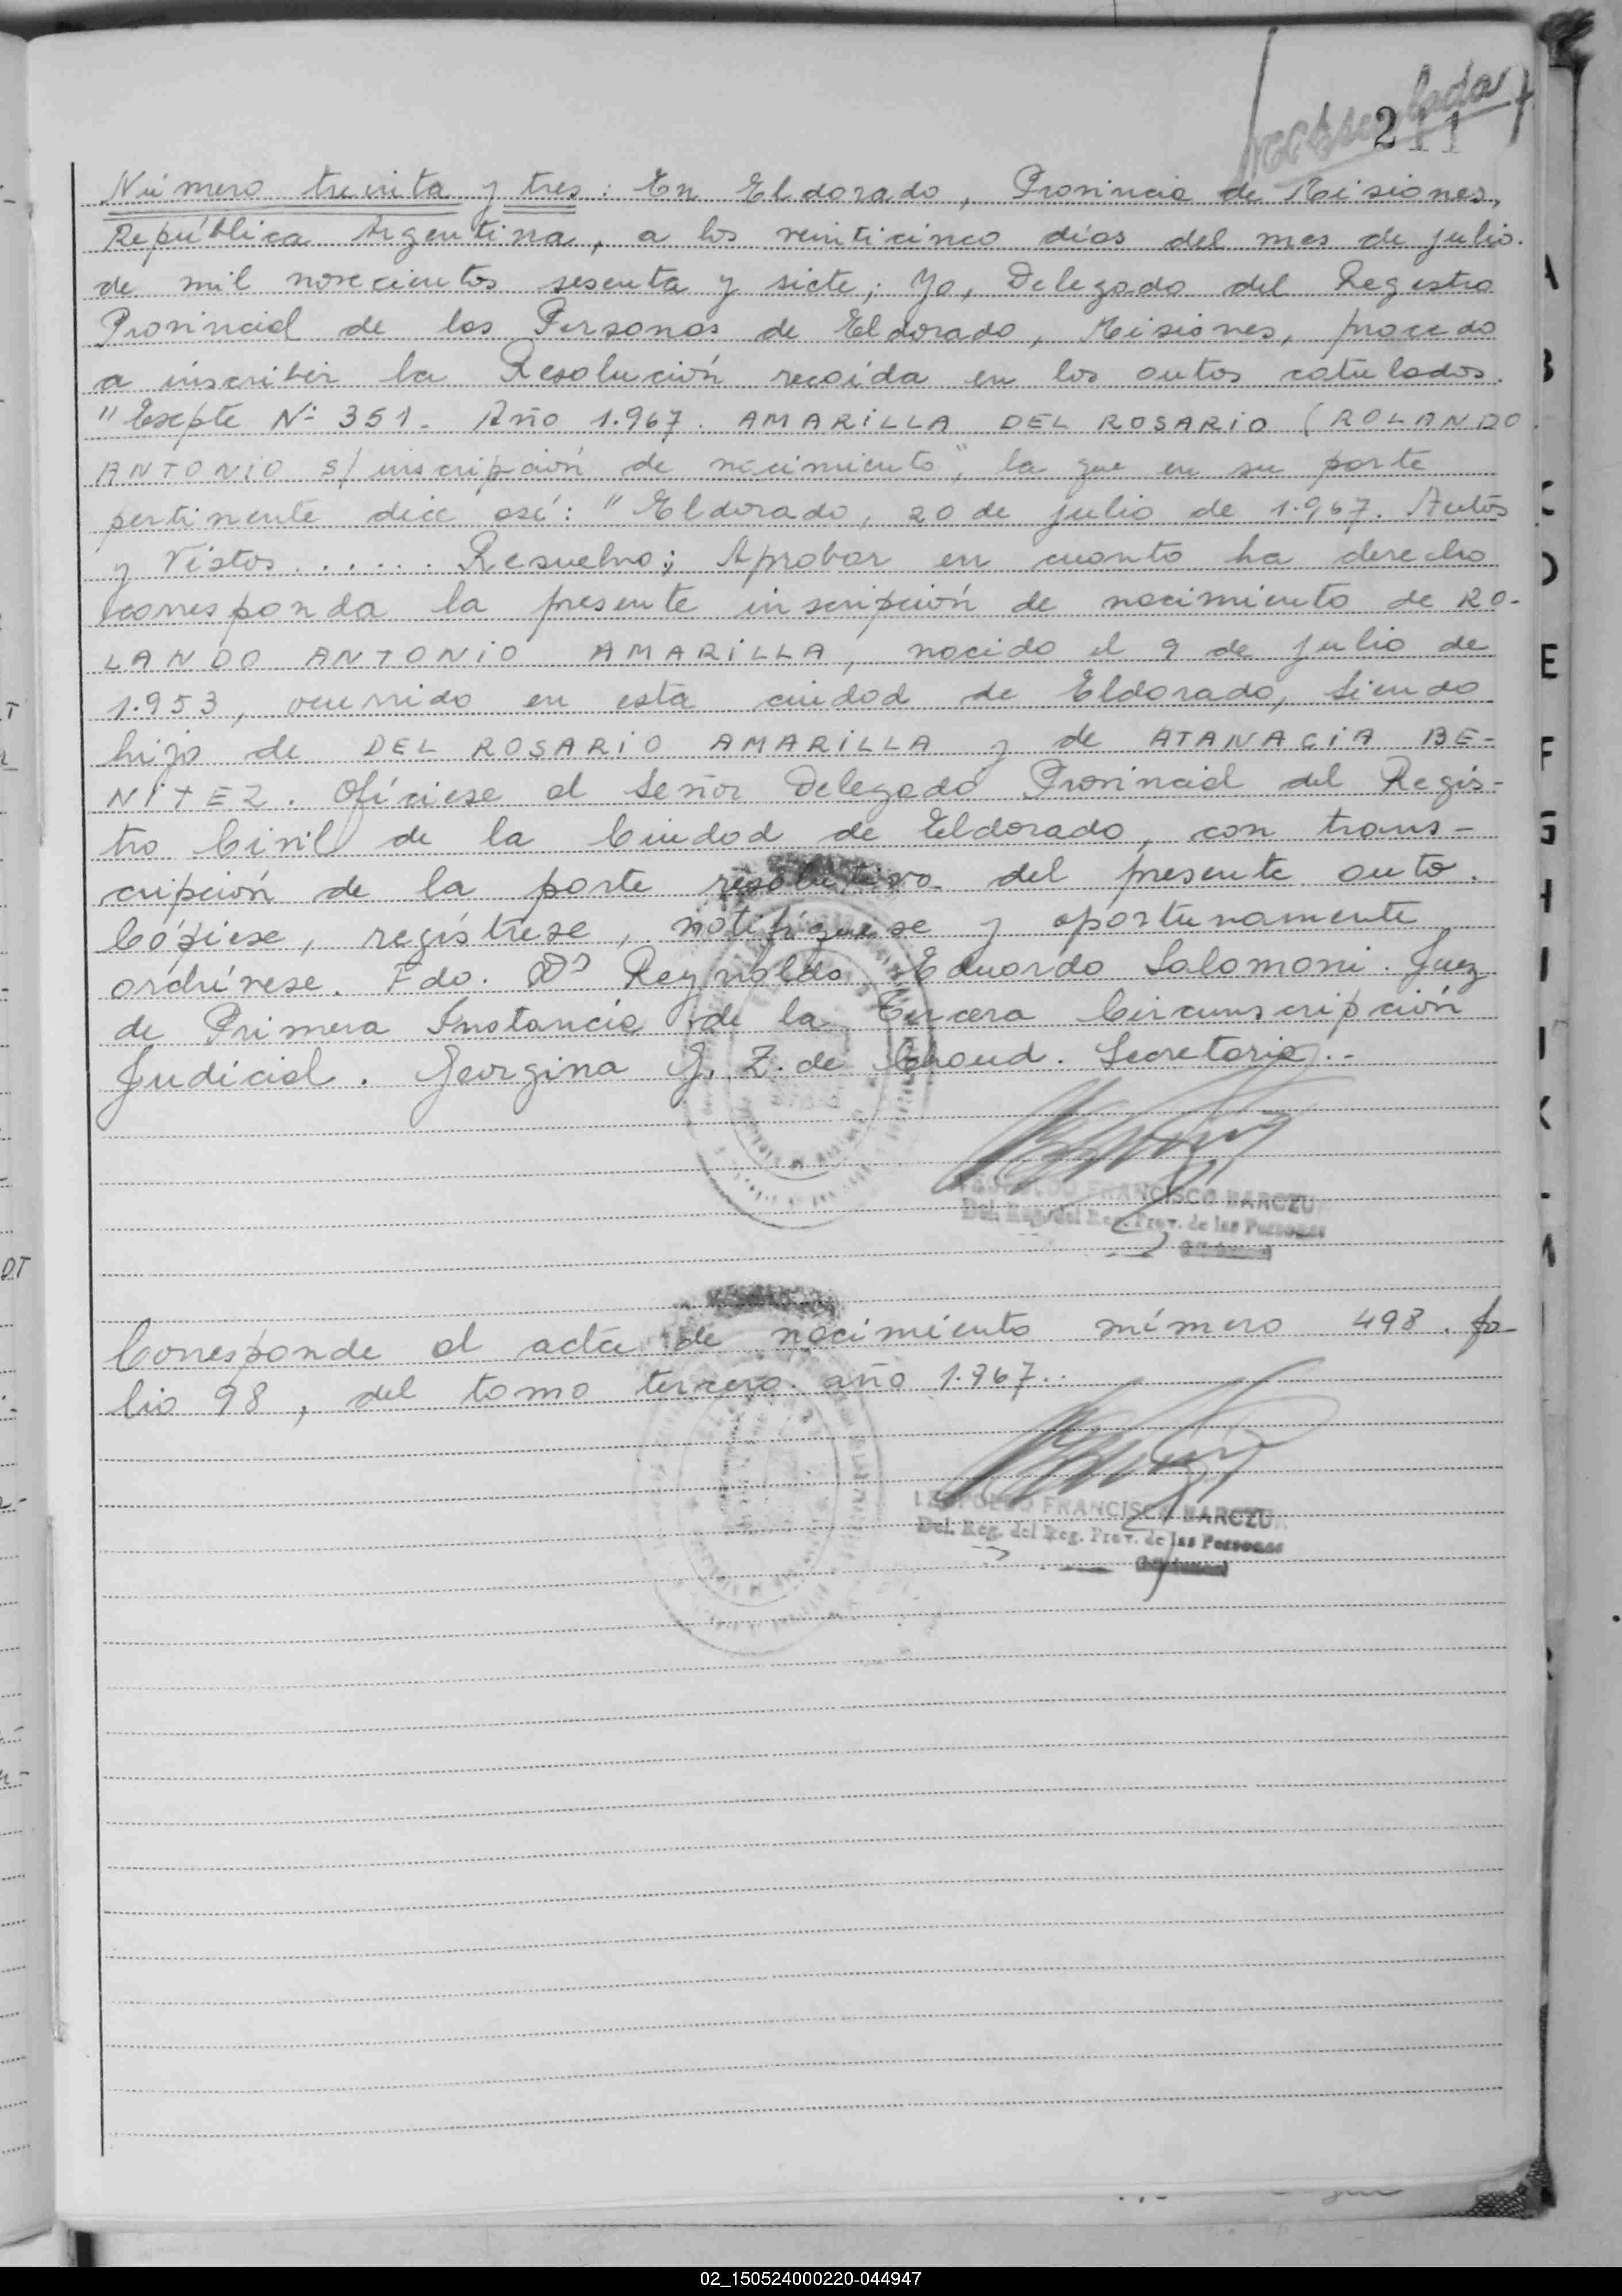 211
Número treinta y tres: En Eldorado, Provincia de Misiones,
República Argentina, a los veinticinco días del mes de julio.
de mil novecientos sesenta y siete; Yo, Delegado del Registro
Provincial de las Personas de Eldorado, Misiones, procedo
a inscribir la Resolución recaída en los autos catulados.
"Expte Nº 351. Año 1.967. AMARILLA DEL ROSARIO (ROLANDO
ANTONIO s/ inscripción de nacimiento", la que en su parte
pertinente dice así: "Eldorado, 20 de julio de 1.967. Autos
y Vistos....... Resuelvo; Aprobar en cuanto ha derecho
corresponda la presente inscripción de nacimiento de RO-
LANDO ANTONIO AMARILLA, nacido el 9 de julio de
1.953, ocurrido en esta ciudad de Eldorado, siendo
hijo de DEL ROSARIO AMARILLA y de ATANACIA BE-
NITEZ. Ofíciese al Señor Delegado Provincial del Regis-
tro Civil de la Ciudad de Eldorado, con trans-
cripción de la parte resolutiva del presente auto.
Cópiese, regístrese, notifíquese y oportunamente
archívese. Fdo. Dr Reynaldo Eduardo Salomoni. Juez
de Primera Instancia de la Tercera Circunscripción
Judicial. Georgina G. Z. de Chaud. Secretaria.-
LEOPOLDO FRANCISCO BARCZUK
Del. Reg. del Reg. Prov. de las Personas
Corresponde al acta de nacimiento número 498. fo-
lio 98, del tomo tercero. año 1.967..
LEOPOLDO FRANCISCO BARCZUK
Del. Reg. del Reg. Prov. de las Personas
02_150524000220-044947